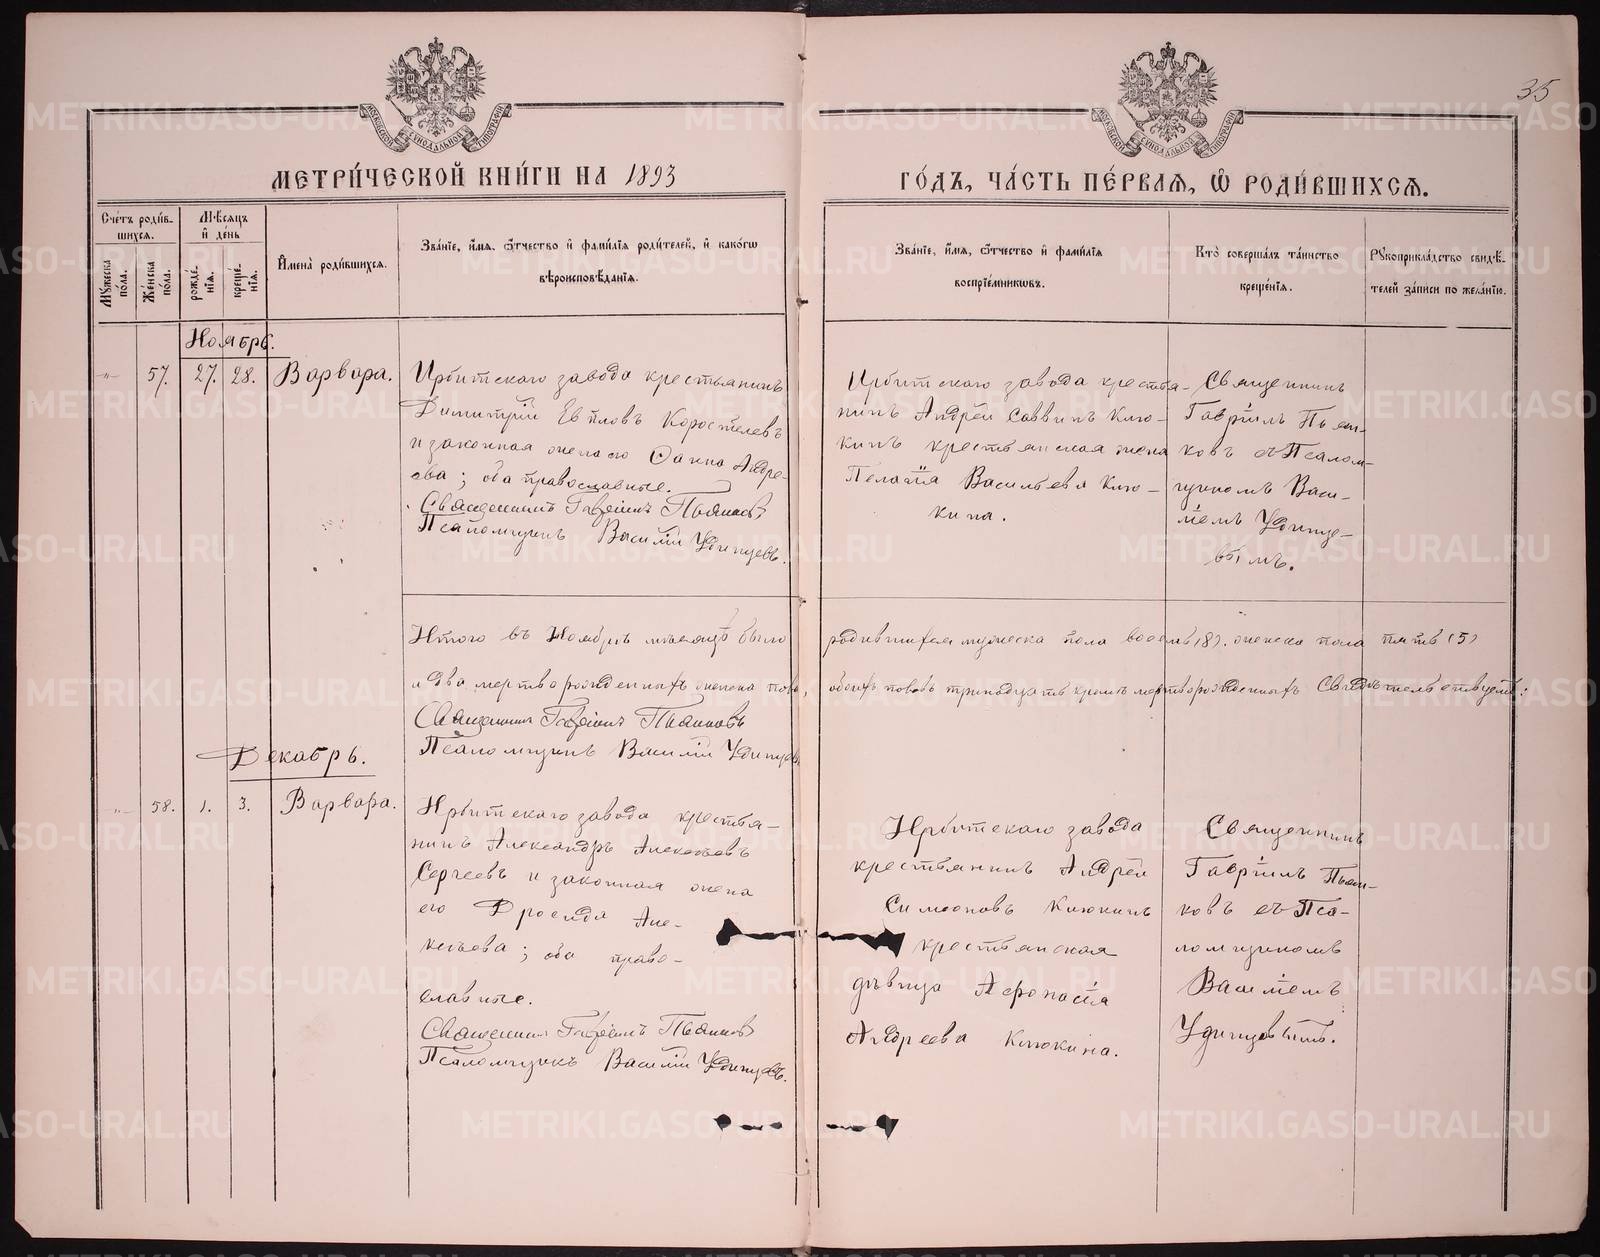 35
МОСКОВСКОЙ СѴНОДАЛЬНОЙ ТИПОГРАФІИ
МОСКОВСКОЙ СѴНОДАЛЬНОЙ ТИПОГРАФІИ
МЕТРИ́ЧЕСКОЙ КНИ́ГИ НА 1893
ГО́ДЪ, ЧА́СТЬ ПЕ́РВАЯ, Ѽ РОДИ́ВШИХСЯ.
Сче́тъ роди́в-
шихся.
Мѣсяцъ
и де́нь
Му́жеска
по́ла.
Же́нска
по́ла.
рожде́-
нія.
креще́-
нія.
Имена̀ роди́вшихся.
Зва́ніе, и́мя, ѻ́тчество и фами́лія роди́телей, и како́гѡ
вѣроисповѣ́данія.
Зва́ніе, и́мя, ѻ́тчество и фами́лія
воспріе́мникѡвъ.
Кто̀ соверша́лъ та́инство
креще́нія.
Рукоприкла́дство свидѣ́-
телей за́писи по жела́нію.
Ноябрь.
-"- 57. 27. 28. Варвара.
Ирбитскаго завода крестьянинъ
Димитрій Евпловъ Коростелевъ
и законная жена его Анна Андре-
ева; оба православные.
Священникъ Гавріилъ Пьянковъ
Псаломщикъ Василій Удинцевъ.
Ирбитскаго завода крестья-
нинъ Андрей Саввинъ Клю-
кинъ крестьянская жена
Пелагія Васильева Клю-
кина.
Священникъ
Гавріилъ Пьян-
ковъ съ Псалом-
щикомъ Васи-
ліемъ Удинце-
вымъ.
Итого въ Ноябрѣ мѣсяцѣ было родившихся мужеска пола восемь (8). женска пола пять (5)
и два мертворожденныхъ женска пола, обоихъ половъ тринадцать кромѣ мертворожденныхъ Свидѣтельствуемъ:
Священникъ Гавріилъ Пьянковъ
Псаломщикъ Василій Удинцевъ
Декабрь.
-"- 58. 1. 3. Варвара.
Ирбитскаго завода крестья-
нинъ Александръ Алексѣевъ
Сергеевъ и законная жена
его Дросида Але-
ксѣева; оба право-
славные.
Священникъ Гавріилъ Пьянковъ
Псаломщикъ Василій Удинцевъ.
Ирбитскаго завода
крестьянинъ Андрей
Симеоновъ Клюкинъ
крестьянская
дѣвица Афонасія
Андреева Клюкина.
Священникъ
Гавріилъ Пьян-
ковъ съ Пса-
ломщикомъ
Василіемъ
Удинцовымъ.
METRIKI.GASO-URAL.RU